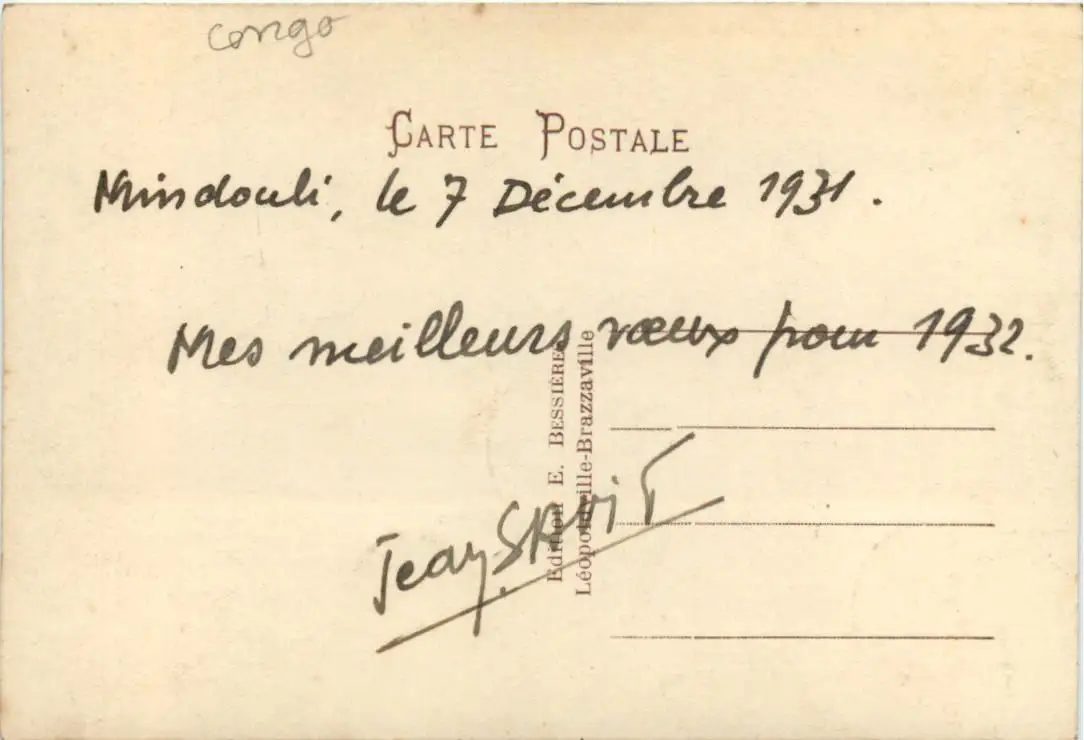 congo
CARTE POSTALE
Mindouli, le 7 Décembre 1931.
Mes meilleurs vœux pour 1932.
Edition E. BESSIÈRE
Léopoldville-Brazzaville
Jean